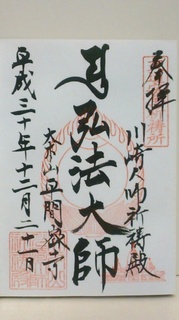 奉拝
川崎大師祈祷殿
弘法大師
大本山平間寺
平成三十年十二月二十一日